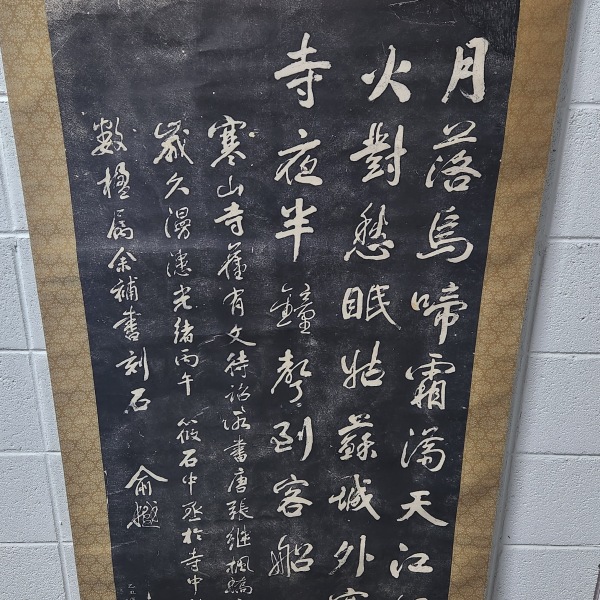 月落烏啼霜滿天江
火對愁眠姑蘇城外寒
寺夜半鐘聲到客船
寒山寺舊有文待詔所書唐張繼楓橋
歲久漫漶光緒丙午筱石中丞於寺中
數楹屬余補書刻石 俞樾